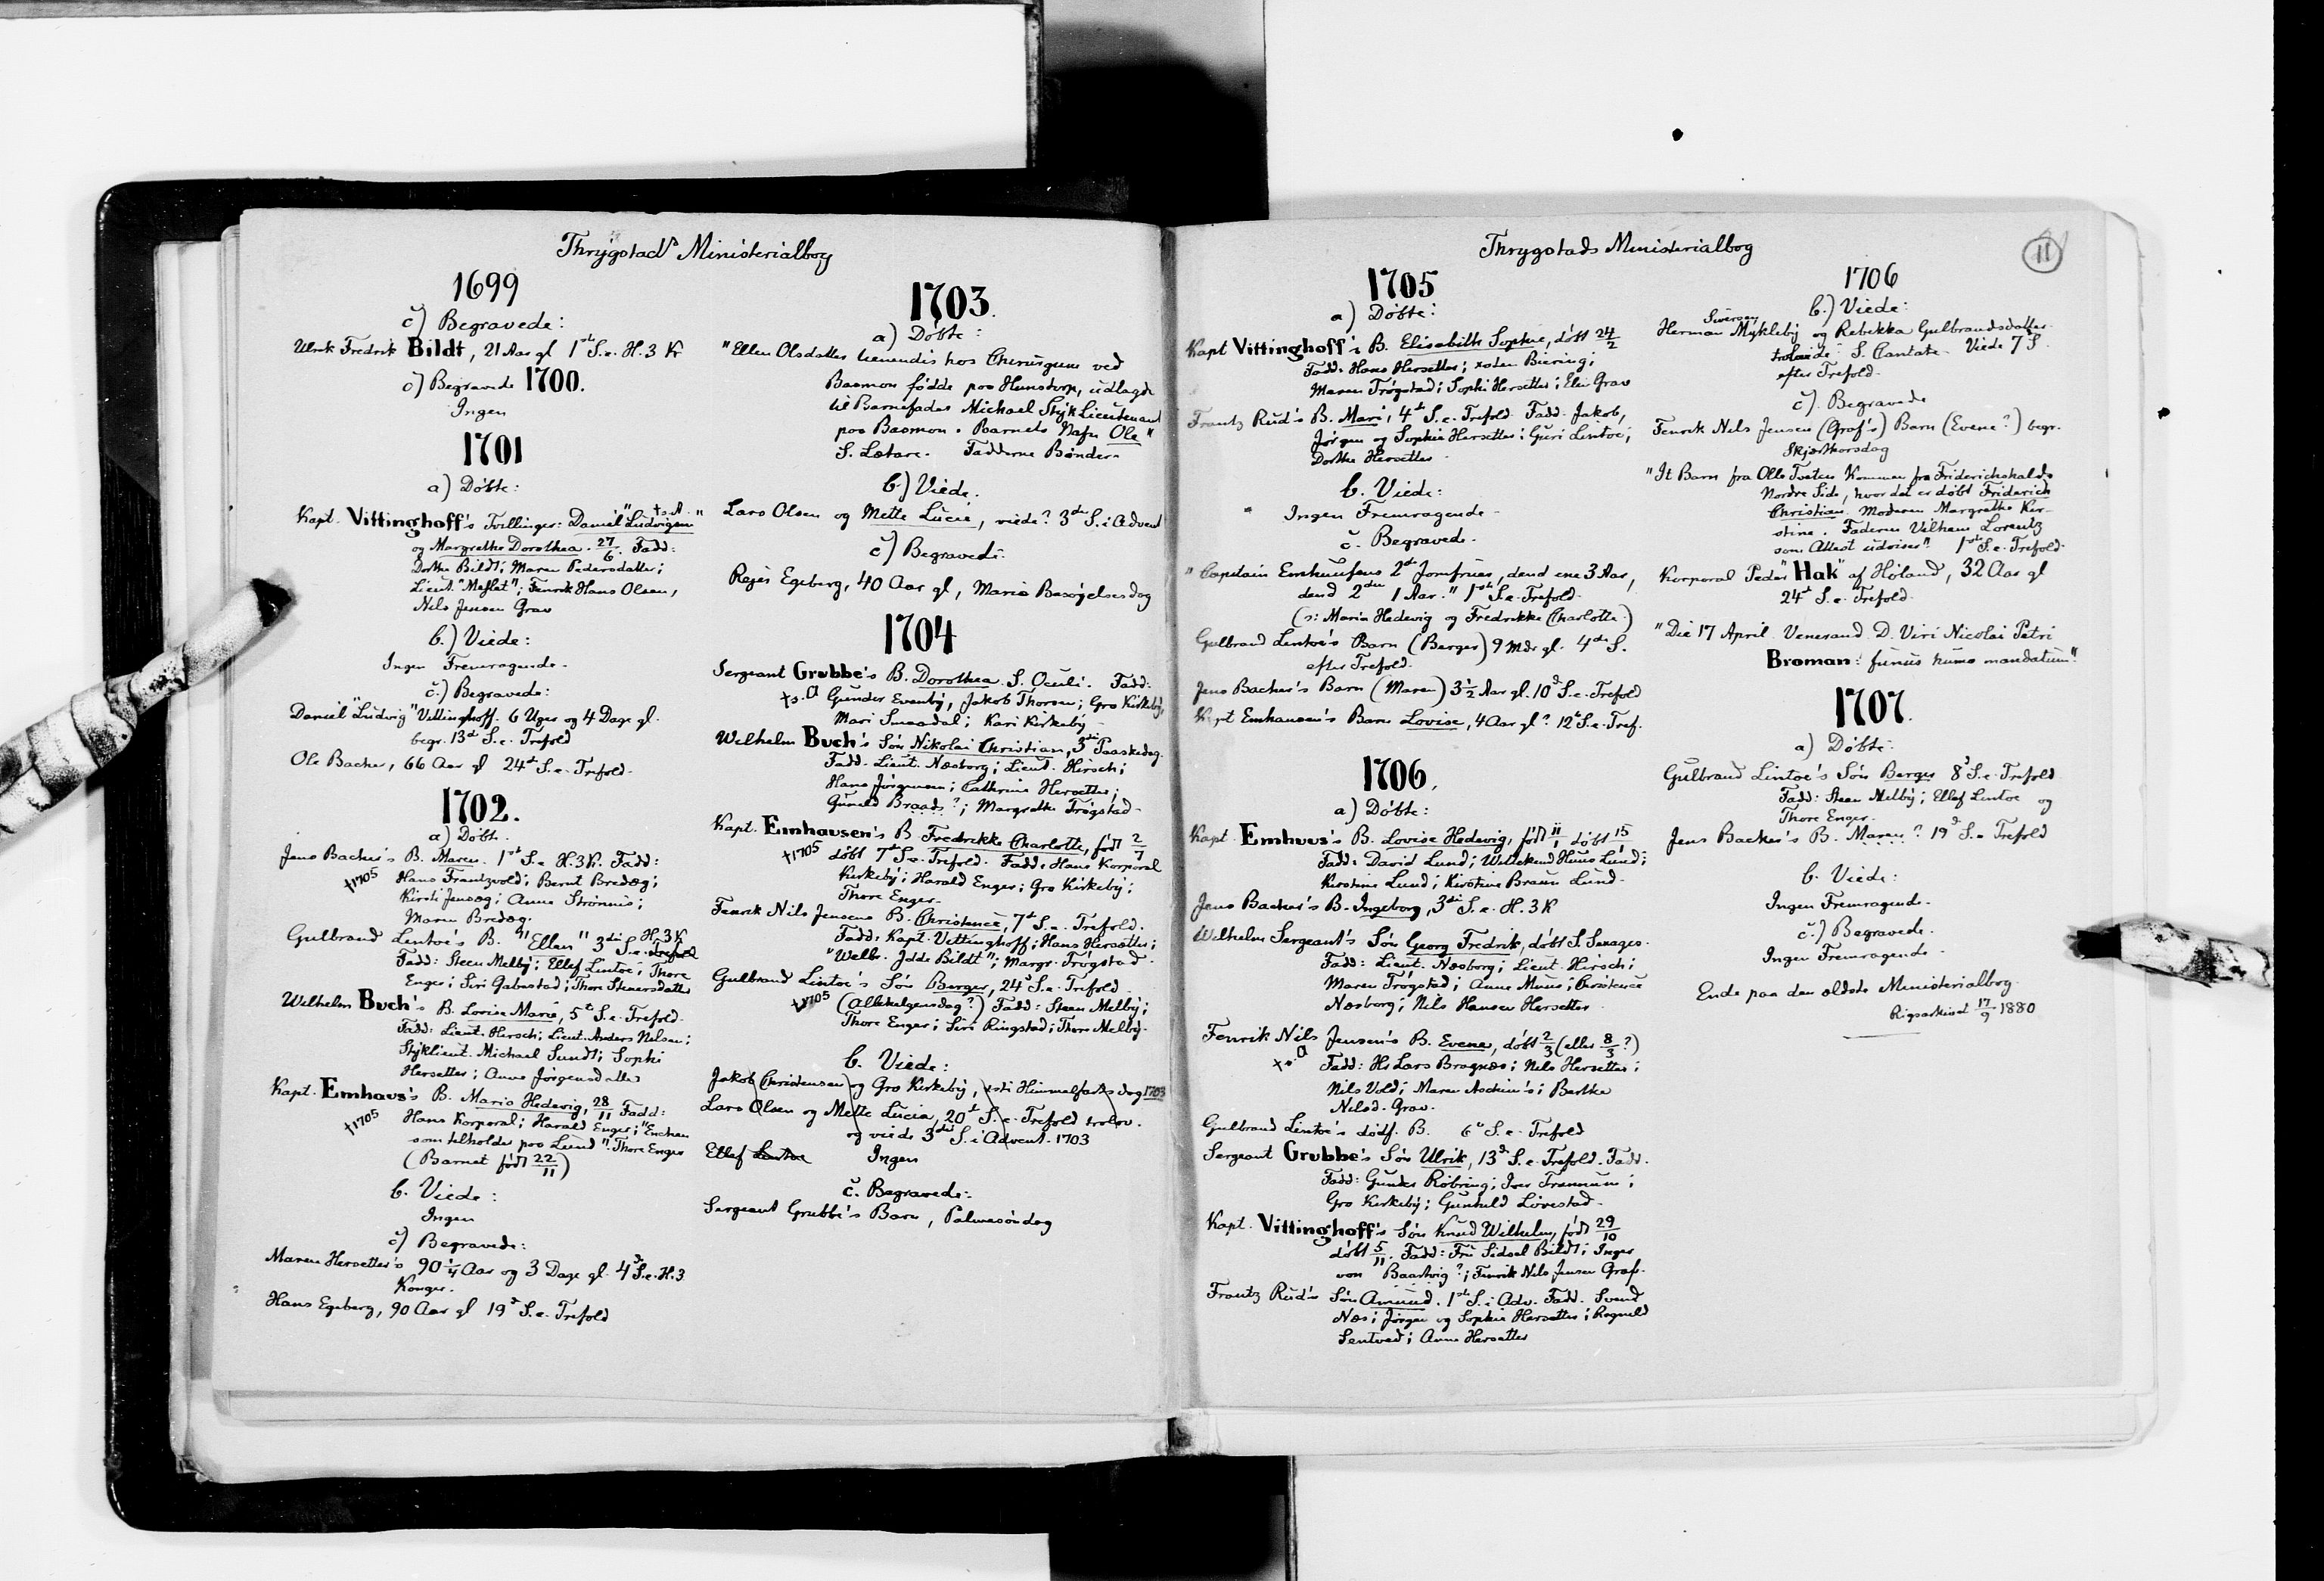 Thrygstads Ministerialbog
1699
c) Begravede:
Ulrik Fredrik Bildt, 21 Aar gl 1ste S. e. H. 3 K
c) Begravede 1700.
Ingen
1701
a) Døbte:
Kapt. Vittinghoff's Tvillinger: Daniel "Ludvigsen" † s. A.
og Margrethe Dorothea. 27/6. Fadd:
Dorthe Bildt; Maren Pedersdatter;
Lieut. "Meflet"; Fenrik Hans Olsen,
Nils Jensen Grav
b.) Viede:
Ingen Fremragende.
c.) Begravede:
Daniel "Ludvig" Vittinghoff. 6 Uger og 4 Dage gl.
begr. 13de S. e. Trefold
Ole Bacher, 66 Aar gl 24de S. e. Trefold.
1702.
a) Døbte.
Jens Bacher's B. Maren. 1ste S. e. H. 3 K. Fadd:
†1705 Hans Frantzvold; Bernt Bredæg;
Kirsti Jensæg; Anne Strønnis;
Maren Bredæg.
Gulbrand Lentoe's B. "Ellen" 3die S. e. Trefold H. 3 K
Fadd: Steen Melby; Ellef Lintoe; Thore
Enger; Siri Gabestad; Thore Stenersdatter
Wilhelm Buch's B. Lovise Marie, 5te S. e. Trefold.
Fadd: Lieut. Hirsch; Lieut. Anders Nelsen;
Styklieut. Michael Sundt; Sophi
Hersetter; Anne Jørgensdatter
Kapt. Emhaus's B. Maria Hedevig, 28/11 Fadd:
†1705 Hans Korporal; Harald Enger; "Enchen
som tilholder paa Lund". Thore Enger
(Barnet født 22/11)
b. Viede:
Ingen
c) Begravede:
Maren Hersetter's 90 1/4 Aar og 3 Dage gl. 4de S. e. H. 3
Konger.
Hans Egeberg, 90 Aar gl 19de S. e. Trefold
1703.
a) Døbte:
"Ellen Olsdatter tienendis hos Chirurgum ved
Basmon fødde paa Hemstorp, udlagde
til Barnefader Michael Styk Lieutenant
paa Basmon. Barnets Nafn Ole"
S. Lætare. Fadderne Bønder.
b.) Viede.
Lars Olsen og Mette Lucie, viede? 3die S. i Advent
c) Begravede:
Rejer Egeberg, 40 Aar gl, Mariæ Besøgelsesdag
1704
Sergeant Grubbe's B. Dorothea. S. Oculi. Fadd:
† s. A Gunder Evenby, Jakob Thorsen; Gro Kirkeby,
Mari Smaadal; Kari Kirkeby
Wilhelm Buch's Søn Nikolai Christian, 3die Paaskedag.
Fadd. Lieut. Næsborg; Lieut. Hirsch;
Hans Jørgensen; Cathrine Hersetter;
Guneld Braads?; Margrethe Trøgstad.
Kapt. Emhausen's B. Fredrikke Charlotte, født 2/7
†1705 døbt 7de S. e. Trefold. Fadd: Hans Korporal
Kirkeby; Harald Enger; Gro Kirkeby;
Thore Enger.
Fenrik Nils Jensens B. Christence, 7de S. e. Trefold.
Fadd: Kapt. Vittinghoff; Hans Hersetter;
"Welbr. Jdde Bildt"; Margr. Trøgstad.
Gulbrand Lintoe's Søn Berger, 24de S. e. Trefold
†1705 (Allehelgensdag?) Fadd: Steen Melby;
Thore Enger; Siri Ringstad; Thore Melby.
b. Viede:
Jakob Christensen og Gro Kirkeby, Christi Himmelfartsdag 1703
Lars Olsen og Mette Lucia, 20de S. e. Trefold trolov.
og viede 3die S. i Advent. 1703
Ellef Lentoe Ingen
c. Begravede:
Sergeant Grubbe's Barn, Palmesøndag
Thrygstads Ministerialbog
11
1705
a) Døbte:
Kapt Vittinghoff's B. Elisabeth Sophie, døbt 24/2
Fadd: Hans Hersetter; Biering;
Maren Trøgstad; Sophi Hersetter; Elen Grav
Frantz Rud's B. Mari, 4de S. e. Trefold. Fadd: Jakob,
Jørgen og Sophie Hersetter; Guri Lintoe;
Dorthe Hersetter.
b. Viede:
Ingen Fremragende.
c. Begravede.
"Capitain Emhausens 2de Jomfruer, dend ene 3 Aar,
dend 2den 1 Aar." 1ste S. e. Trefold.
(: Maria Hedevig og Fredrikke Charlotte.)
Gulbrand Lentoe's Barn (Berger) 9 Mdr gl. 4de S.
efter Trefold.
Jens Bacher's Barn (Maren) 3 1/2 Aar gl. 10de S. e. Trefold
Kapt Emhausen's Barn Lovise, 4 Aar gl? 12te S. e. Tref.
1706.
a) Døbte:
Kapt. Emhuus's B. Lovise Hedevig, født 11/1 døbt 15
Fadd: David Lund; Willekend Huus Lund;
Kirstine Lund; Kirstine Bruun Lund.
Jens Bacher's B. Ingeborg, 3die S. e. H. 3 K
Wilhelm Sergeant's Søn Georg Fredrik, døbt S. Sexages.
Fadd: Lieut. Næsborg; Lieut. Hirsch;
Maren Trøgstad; Anne Muus; Christence
Næsborg; Nils Hansen Hersetter.
Fenrik Nils Jensen's B. Evene, døbt 2/3 (eller 8/3?)
† s. A Fadd: Hr Lars Bragnæs; Nels Hersetter;
Nils Vold; Maren Aschim's; Berthe
Nilsd. Grav.
Gulbrand Lintoe's dødf. B. 6te S. e. Trefold
Sergeant Grubbe's Søn Ulrik, 13de S. e. Trefold. Fadd.
Fadd: Gunder Røbring; Iver Frannum;
Gro Kirkeby; Gunhuld Løvestad.
Kapt. Vittinghoff's Søn Knud Wilhelm, født 29/10
døbt 5/11. Fadd: Fru Sidsel Bildt; Inger
von Baastvig?; Fenrik Nils Jensen Graf.
Frantz Rud's Søn Amund. 1ste S. i Adv. Fadd. Svend
Næs; Jørgen og Sophie Hersetter; Rogneld
Sentved; Anne Hersetter
1706
b.) Viede:
Herman Iversen Mykleby og Rebekka Gulbrandsdatter
trolovede S. Cantate. Viede 7 S.
efter Trefold.
c). Begravede
Fenrik Nils Jensen (Graf's) Barn (Evene?) begr.
Skjærthorsdag
"It Barn fra Olle Tveten Kommen fra Friderichshalds
Nordre Side, hvor det er døbt Friderich
Christian. Moderen Margrethe Kir-
stine. Faderen Vilhem Lorentz
som Attest udviser" 1ste S. e. Trefold.
Korporal Peder "Hak" af Høland, 32 Aar gl
24de S. e. Trefold.
"Die 17 April Venerand. D. Viri Nicolai Petri
Broman: funus humo mandatum".
1707.
a) Døbte:
Gulbrand Lintoe's Søn Berger 8de S. e. Trefold
Fadd: Steen Melby; Ellef Lentoe og
Thore Enger.
Jens Bacher's B. Maren? 19de S. e. Trefold
b. Viede:
Ingen Fremragende.
c.) Begravede.
Ingen Fremragende.
Ende paa den ældste Ministerialbog.
Rigsarkivet 17/9 1880